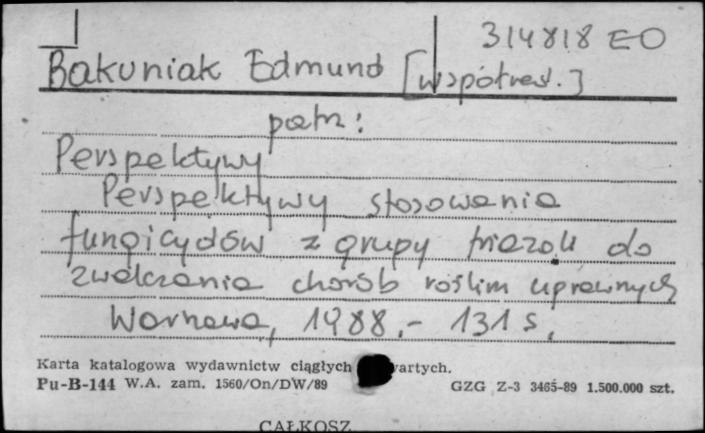 314818 EO
Bakuniak Edmund [współred.]
patrz:
Perspektywy
Perspektywy stosowania
fungicydów z grupy triazoli do
zwalczania chorób roślin uprawnych
Warszawa, 1988.- 131 s.
Karta katalogowa wydawnictw ciągłych wartych.
Pu-B-144 W.A. zam. 1560/On/DW/89 GZG Z-3 3465-89 1.500.000 szt.
CAŁKOSZ